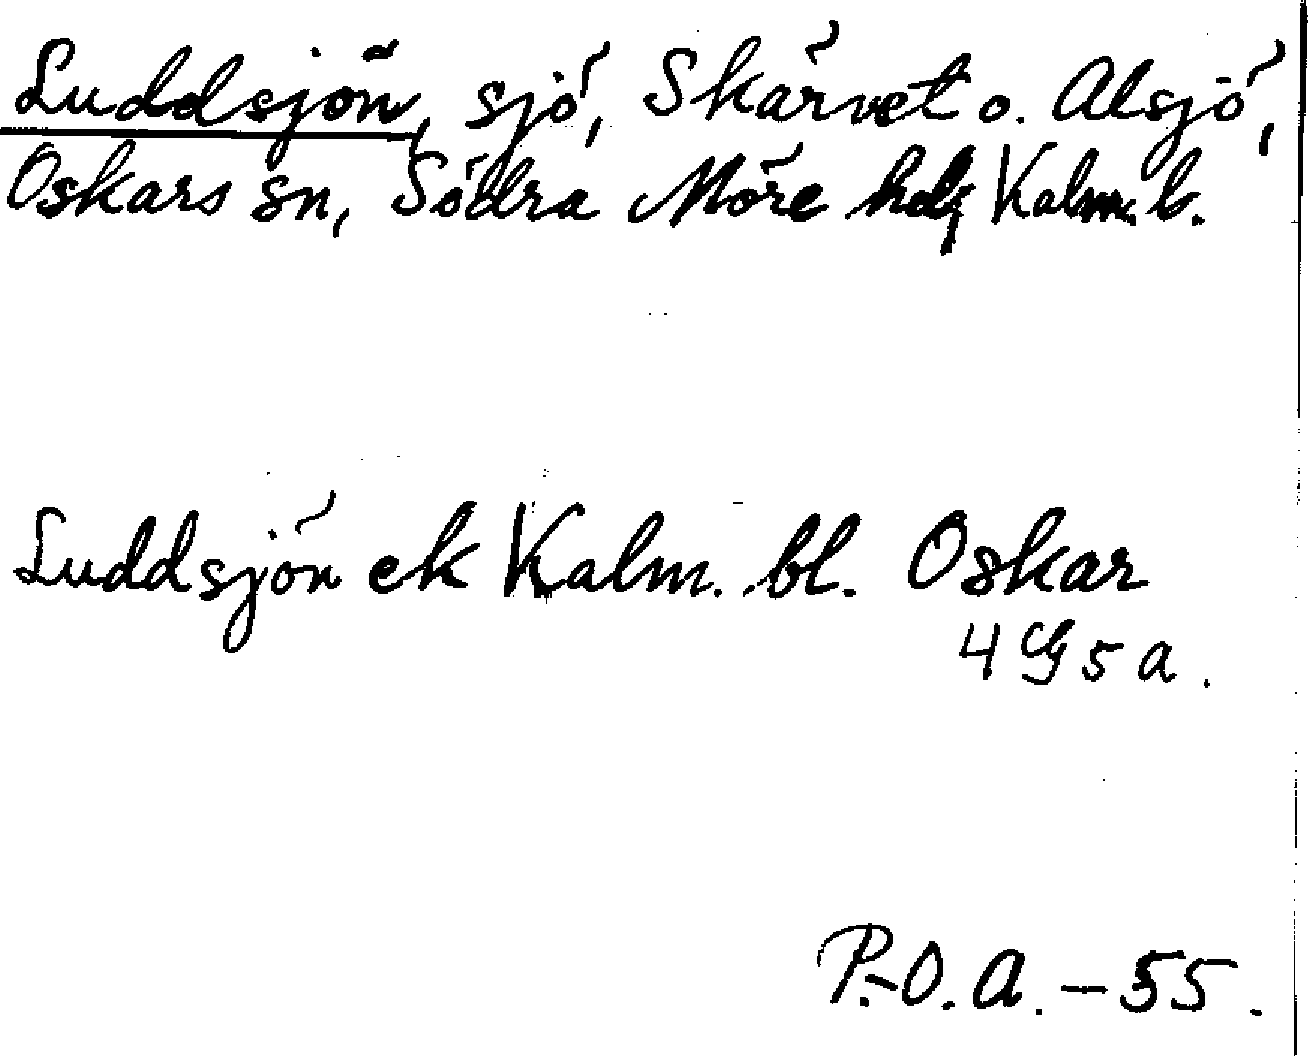 Luddsjön, sjö, Skärvet o. Alsjö,
Oskars sn, Södra Möre hdj Kalm. l.
Luddsjön ek Kalm. bl. Oskar
4 G 5 a.
P.-O. A. - 55.